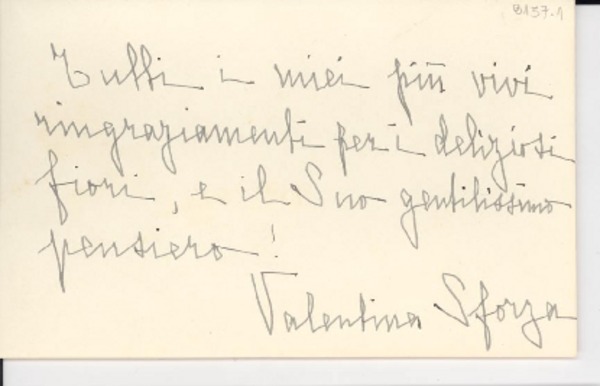 8137.1
Tutti i miei più vivi
ringraziamenti per i deliziosi
fiori, e il Suo gentilissimo
pensiero!
Valentina Sforza